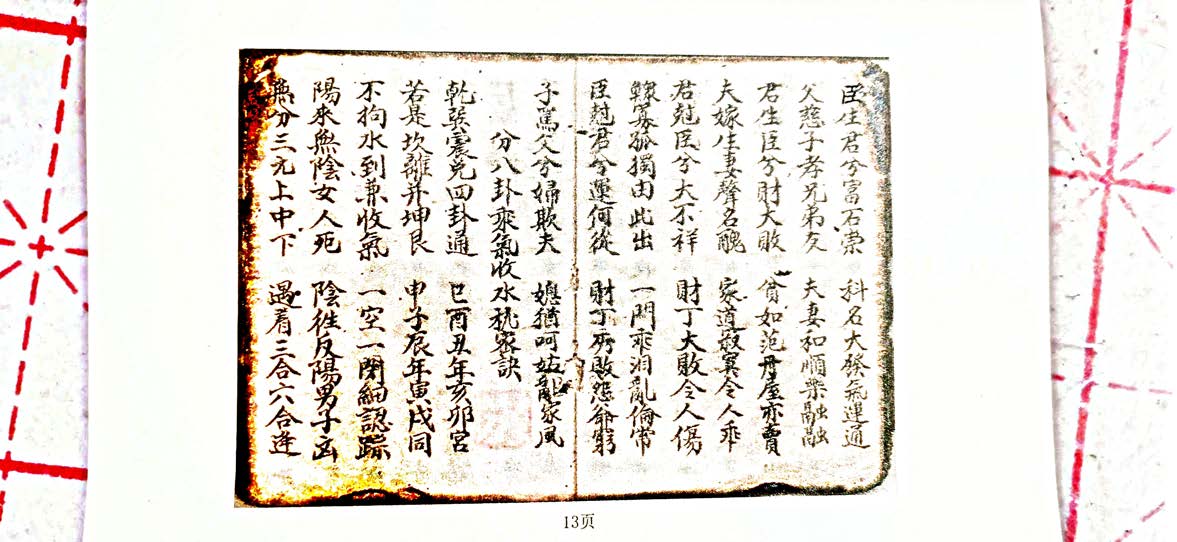 臣生君兮富石崇　科名大發氣運通
父慈子孝兄弟友　夫妻和順樂融融
君生臣兮財大敗　貧如范丹屋亦賣
夫嫁生妻聲名醜　家道寂寞令人乖
君尅臣兮大不祥　財丁大敗令人傷
鰥寡孤獨由此出　一門乖泪亂倫常
臣尅君兮運何從　財丁秀敗怨爺窮
子罵父兮婦欺夫　媳猶呵姑亂家風
分八卦乘氣收水秘密訣
乾巽震兌四卦通　巳酉丑年亥卯宮
若是坎離并坤艮　申子辰年寅戌同
不拘水到兼收氣　一空一閉細認踪
陽來無陰女人死　陰徃反陽男子凶
無分三元上中下　遇着三合六合逢
13页